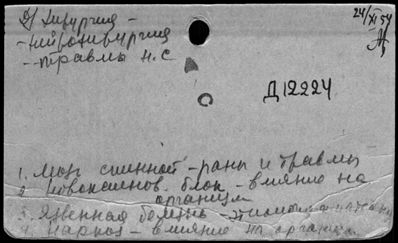 д/ Хирургия -
- нейрохирургия
- травмы н.с
24/XI 54
Д 12224
1. Мозг спинной - раны и травмы
2. Новокаинов. блок - влияние на
организм
3. Язвенная болезнь - этиология и патоген
4. Наркоз - влияние на организм